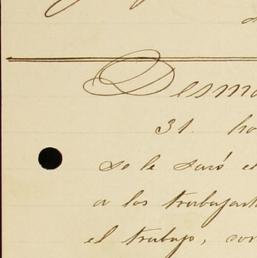 Desmo
31. ho
se le sacó e
a los trabajad
el trabajo, con